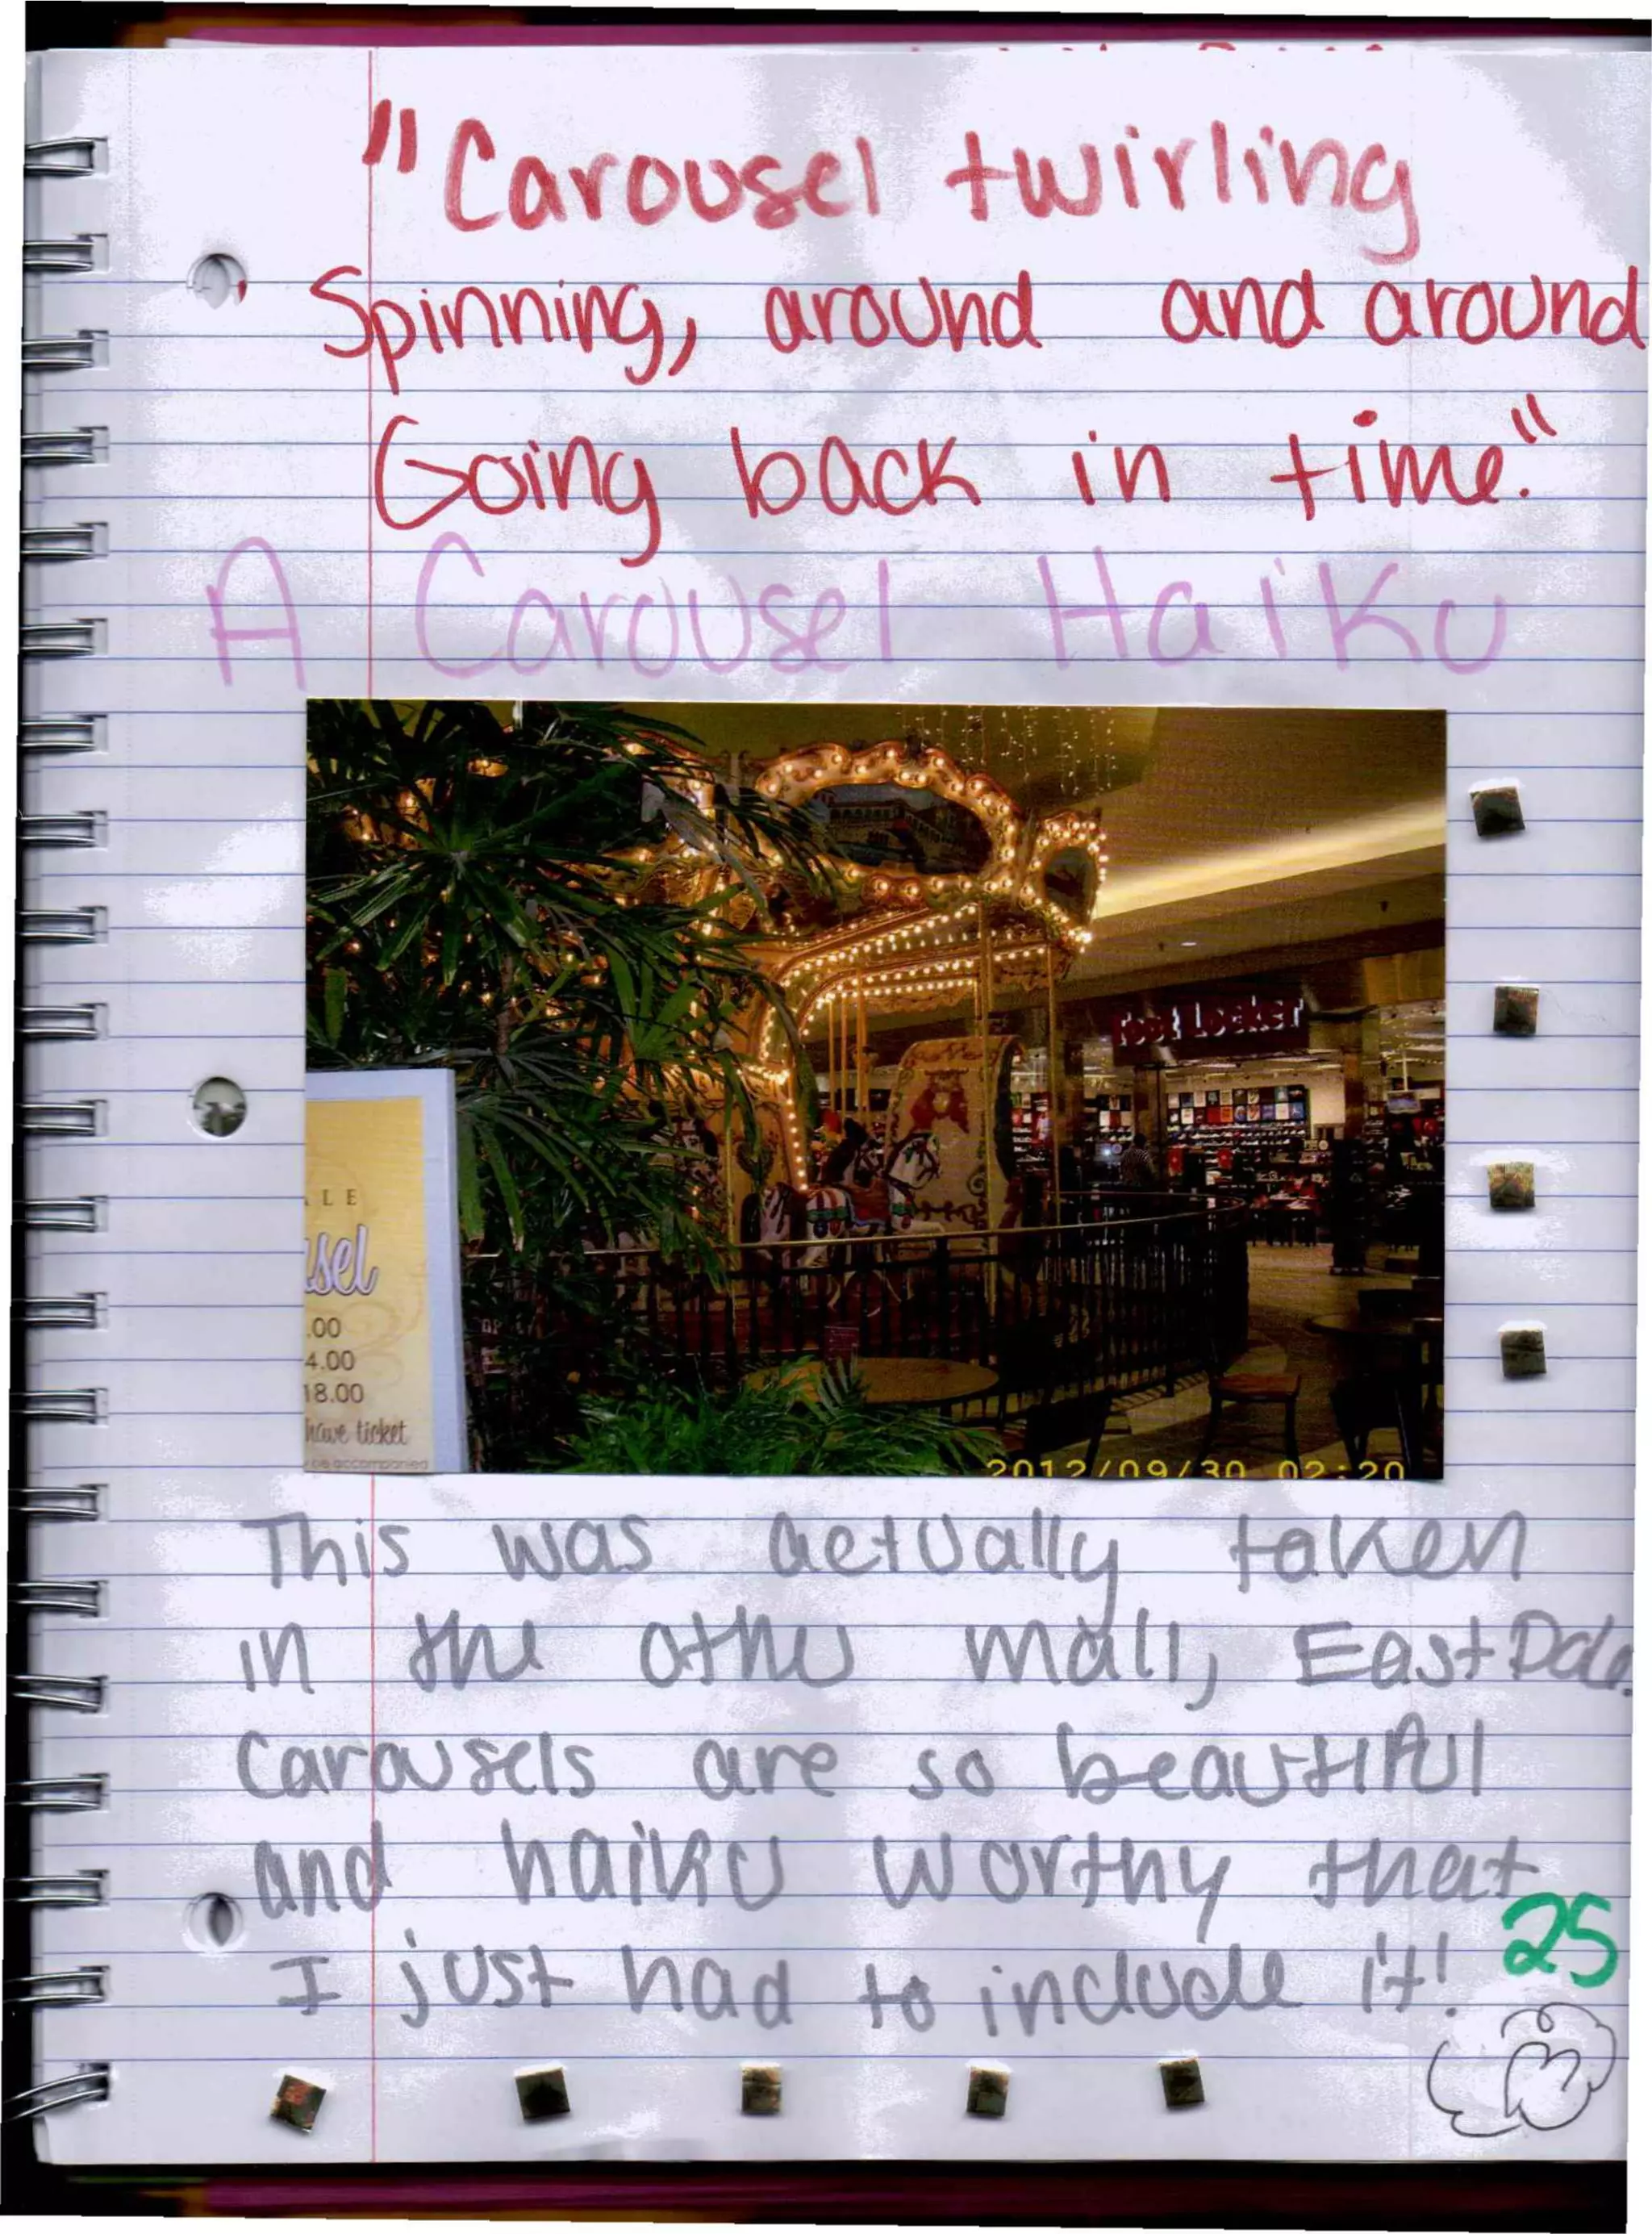 "Carousel twirling
Spinning, around and around
Going back in time."
A Carousel Haiku
Foot Locker
LE
sel
.00
4.00
18.00
have ticket
be accompanied
2012/09/30 02:20
This was actually taken
in the other mall, EastDale.
Carousels are so beautiful
and haiku worthy that
I just had to include it!
25